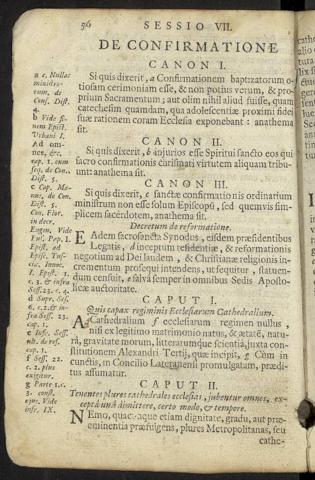 56 SESSIO VII.
DE CONFIRMATIONE
CANON I.
Si quis dixerit, a Confirmationem baptizatorum o-
tiosam cerimoniam esse, & non potius verum, & pro-
prium Sacramentum; aut olim nihil aliud fuisse, quam
catechesim quamdam, qua adolescentiæ proximi fidei
suæ rationem coram Ecclesia exponebant: anathema
sit.
CANON II.
Si quis dixerit, b injurios esse Spiritui sancto eos qui
sacro confirmationis chrismati virtutem aliquam tribu-
unt: anathema sit.
CANON III.
Si quis dixerit, c sanctæ confirmationis ordinarium
ministrum non esse solum Episcopū, sed quemvis sim-
plicem sacerdotem, anathema sit.
Decretum de reformatione.
EAdem sacrosancta Synodus, eisdem præsidentibus
Legatis, d inceptum residentiæ, & reformationis
negotium ad Dei laudem, & Christianæ religionis in-
crementum prosequi intendens, ut sequitur, statuen-
dum censuit, e salva semper in omnibus Sedis Aposto-
licæ auctoritate.
CAPUT I.
Quis capax regiminis Ecclesiarum Cathedralium.
AD Cathedralium f ecclesiarum regimen nullus,
nisi ex legitimo matrimonio natus, & ætate, natu-
rā, gravitate morum, litterarumque scientia, juxta con-
stitutionem Alexandri Tertij, quæ incipit, g Cùm in
cunctis, in Concilio Lateranensi promulgatam, prædi-
tus assumatur.
CAPUT II.
Tenentes plures cathedrales ecclesias, jubentur omnes, ex-
ceptâ unâ dimittere, certo modo, & tempore.
NEmo, quacunque etiam dignitate, gradu, aut præ-
eminentia præfulgens, plures Metropolitanas, seu
cathe-
a c. Nullus
ministro-
rum, de
Cons. Dist.
4.
b Vide fi-
nem Epist.
Urbani I.
Ad om-
nes, &c.
cap. 1. cum
seq. de Con.
Dist. 5.
c Cap. Ma-
nus, de Con.
Dist. 5.
Con. Flor.
in decr.
Eugen. Vide
Epist. ad
Epist. 1.
c. 3. & infra
Sess. 23. c. 4.
d Supr. Ses.
6. c. 2. & in-
fra Sess. 23.
cap. 1.
e Infr. Sess.
cap. 1.
f Sess. 22.
c. 2. plus
exigitur.
g Parte 1. c.
3. const.
ejus. Vide
infr. IX.